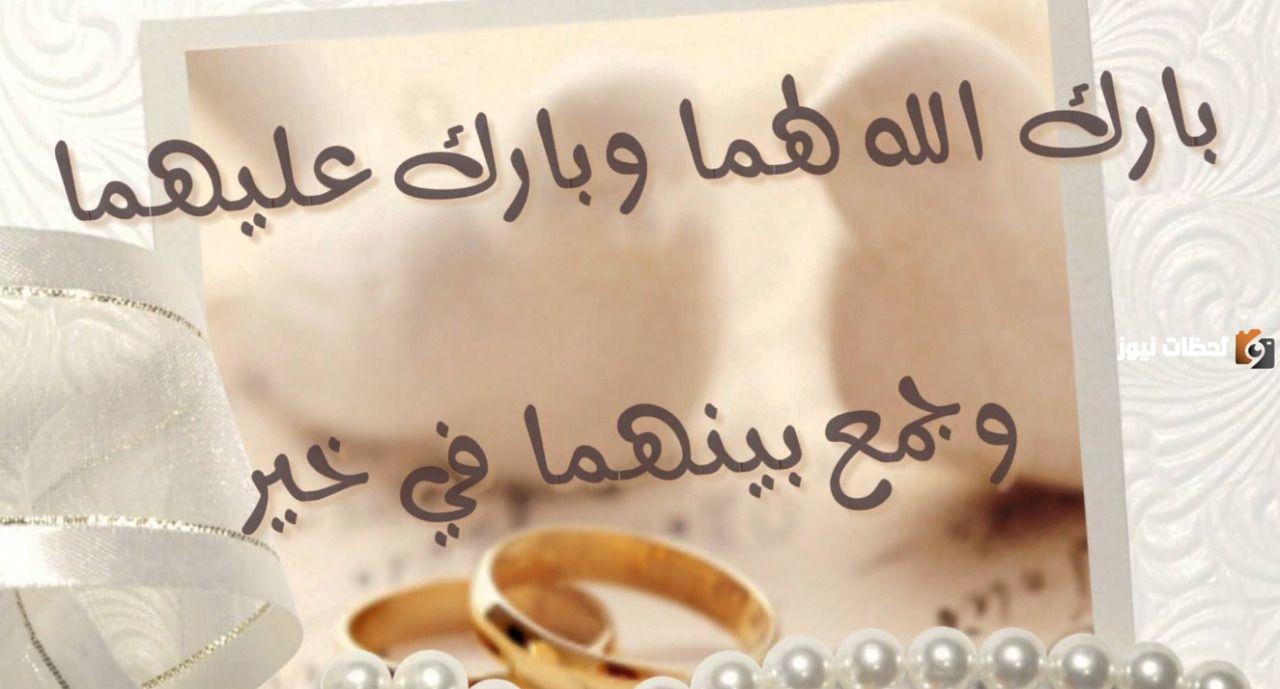 بارك الله لهما وبارك عليهما
وجمع بينهما في خير
لحظات نيوز